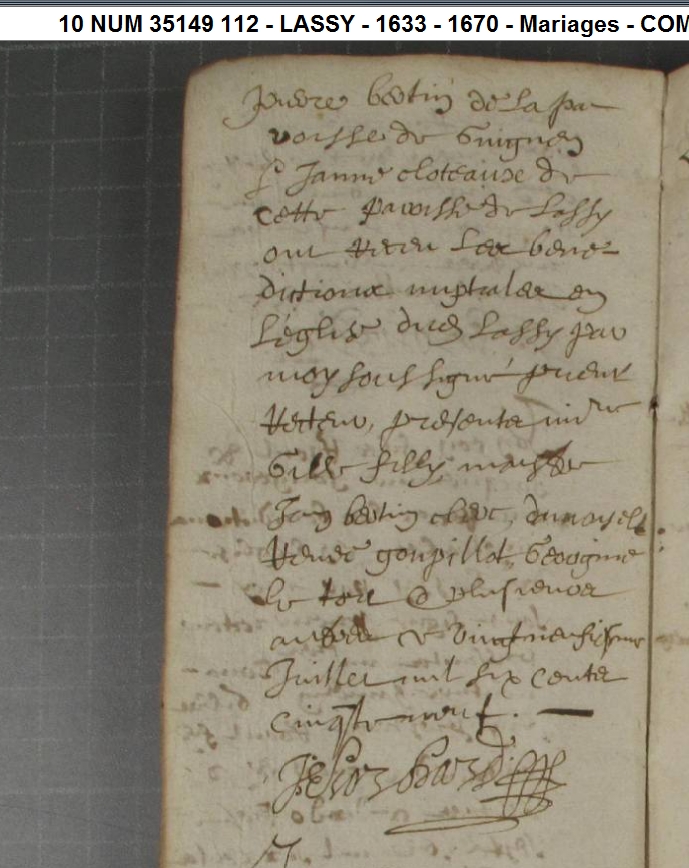 10 NUM 35149 112 - LASSY - 1633 - 1670 - Mariages - COM
Pierre bertin de la pa
roisse de Guignen
& Janne cloteaux de
cette paroisse de Lassy
ont Receu les bene
dictions nuptales en
L'église dud Lassy par
moy soussigné prieur
Recteur, presents
Gille filly
Jan bertin clerc, damoiselle
Renee goupillot Georgine
le & plusieurs
autres ce vingtneufiesme
Juillet mil six cents
cinqte neuf.